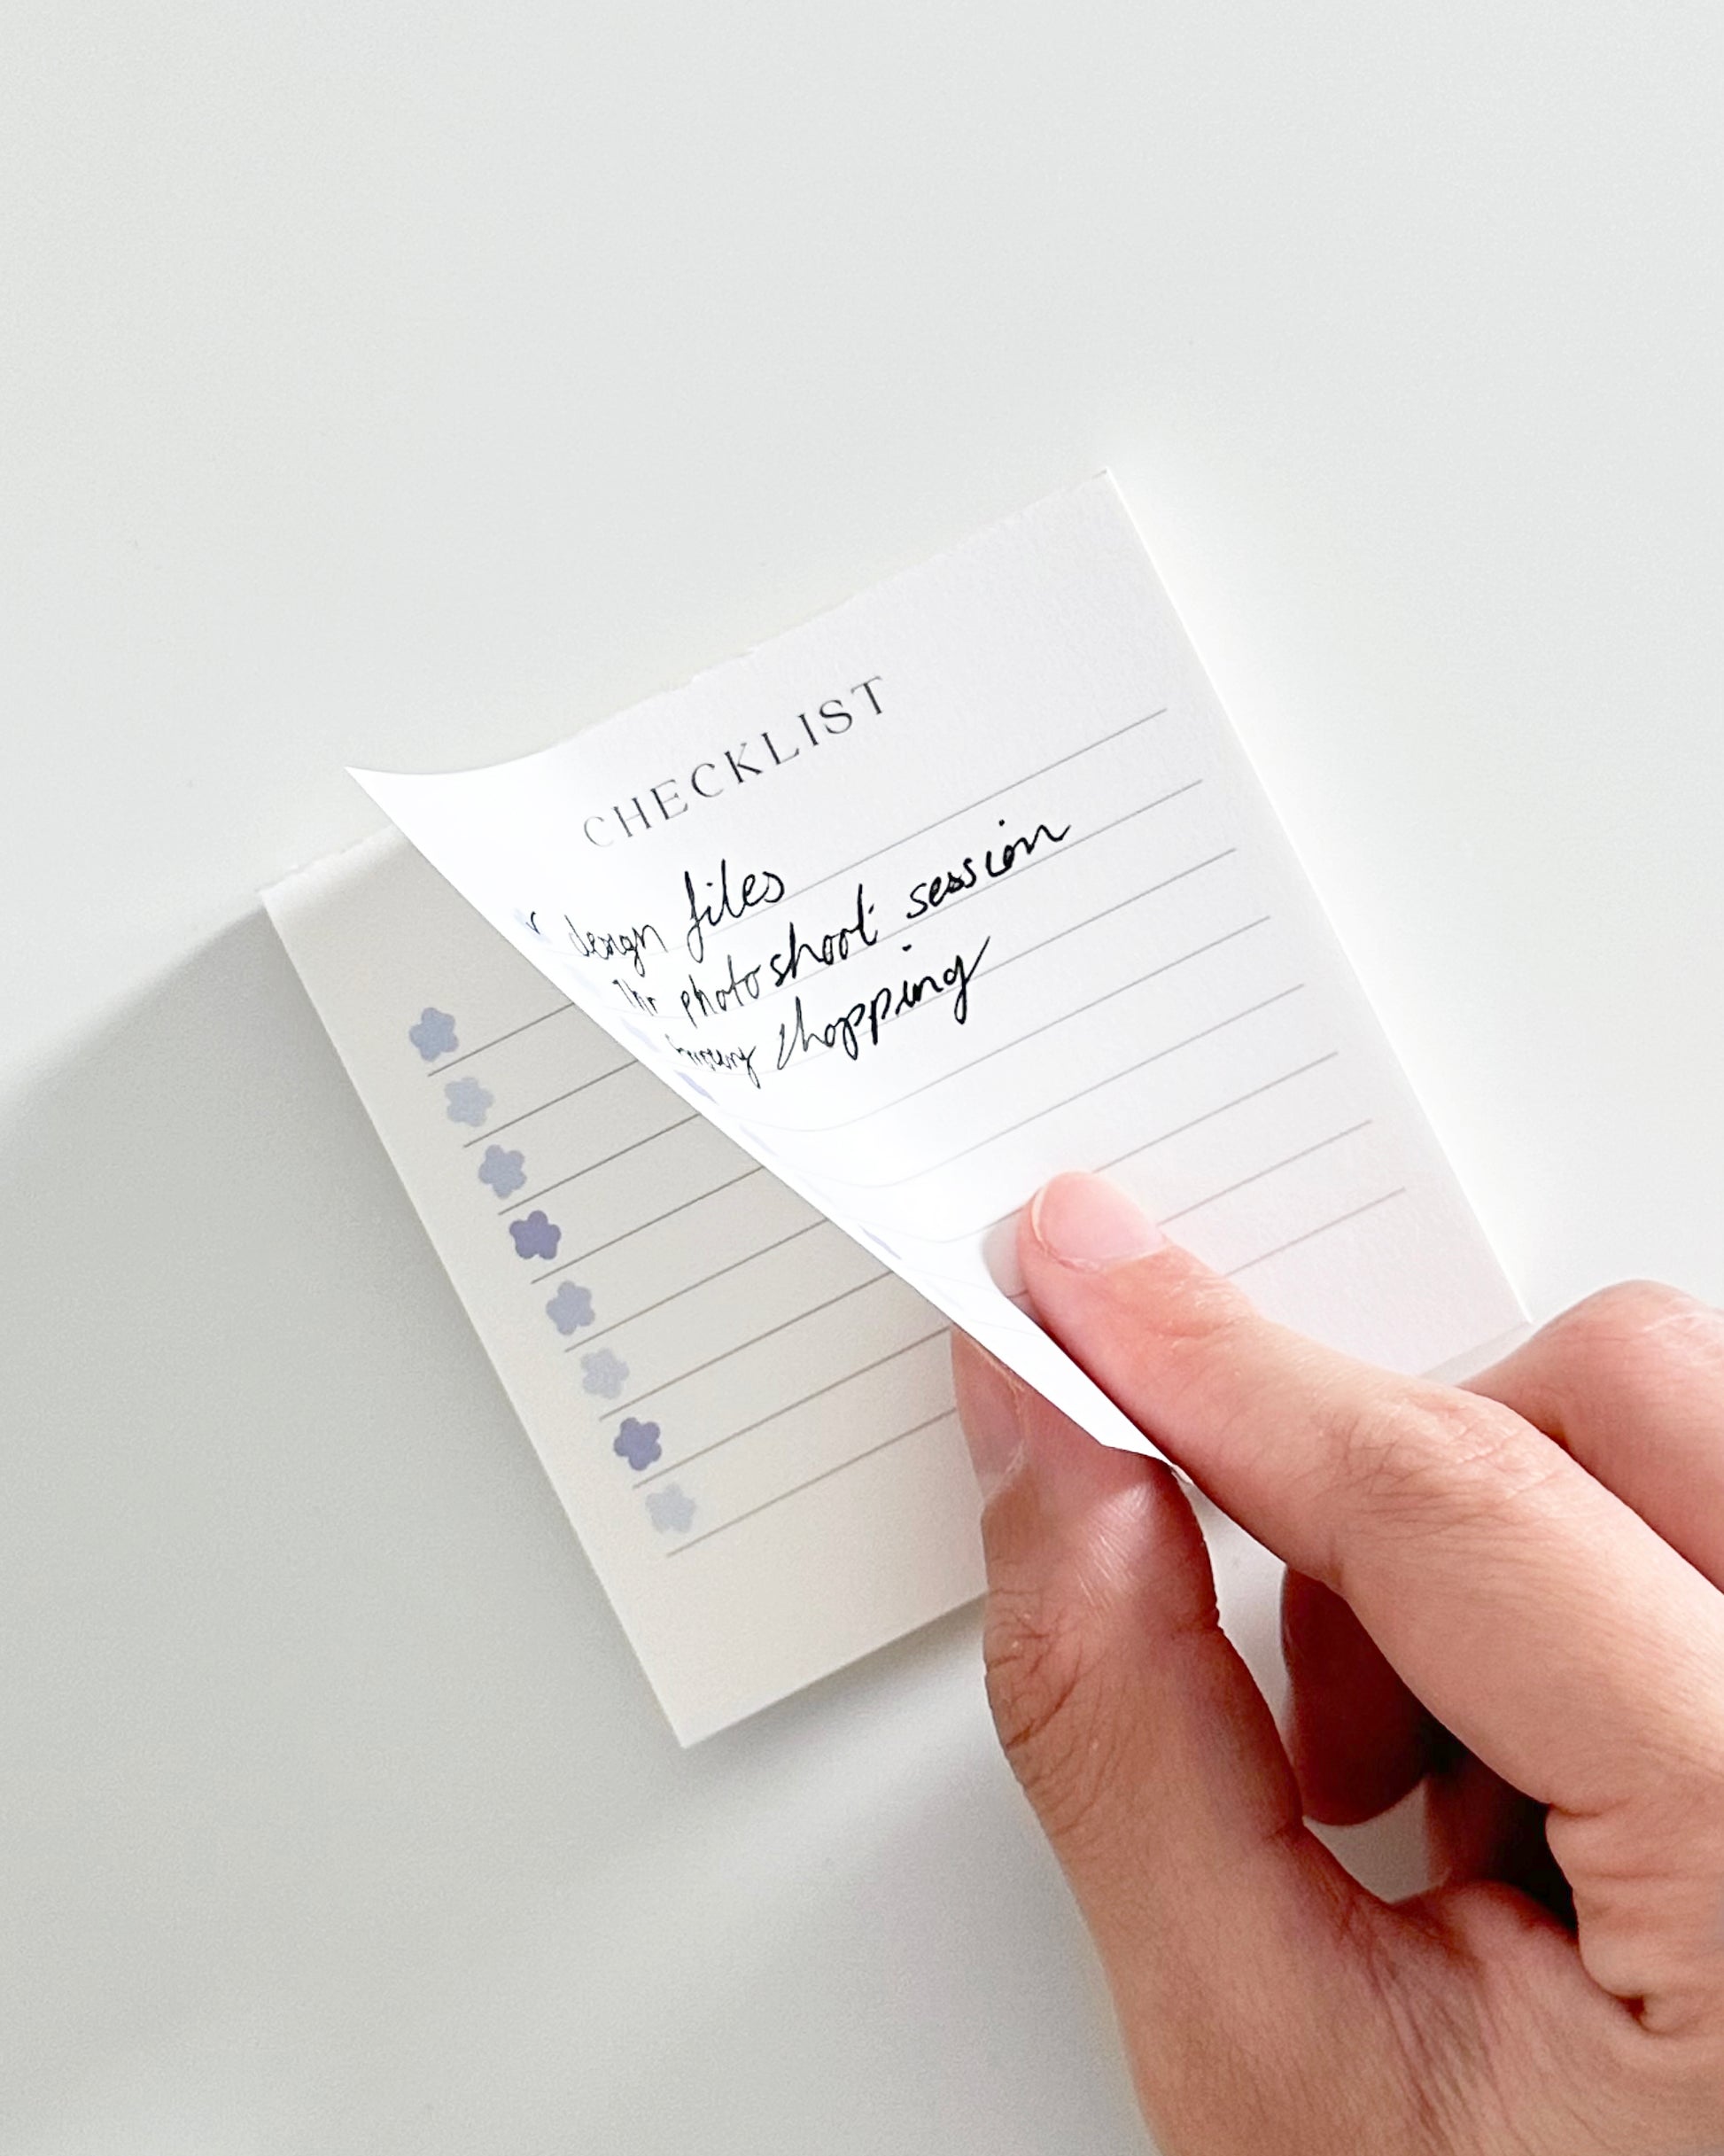 CHECKLIST
design files
1hr photoshoot session
shopping